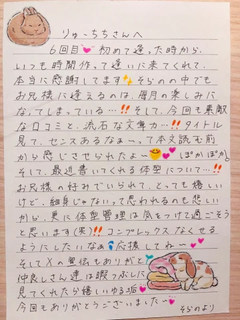 りゅーちちさんへ
6回目💕初めて逢った時から、
いつも時間作って逢いに来てくれて、
本当に感謝してます✨そらのの中でも
お兄様に逢えるのは、毎月の楽しみに
なってしまっている…‼そして、今回も素敵
な口コミと、流石な文章力…‼タイトル
見て、センスあるなぁーって本文読む前
から感じさせられたよー💕ぽかぽか
そして、最近書いてくれる体型について…‼
お兄様の好みでいられて、とっても嬉しい
けど、細身じゃないって思われるのも悲し
いから、更に体型管理は気をつけて過ごそう
と思います(笑)‼コンプレックスなくせる
ようにしたいなぁ 応援しててねー💕
そしてXの無店もありがと
仲良しさん達は暇つぶしに
見てくれたら嬉しいゆる垢
今回もありがとうございましたー💕
そらのより